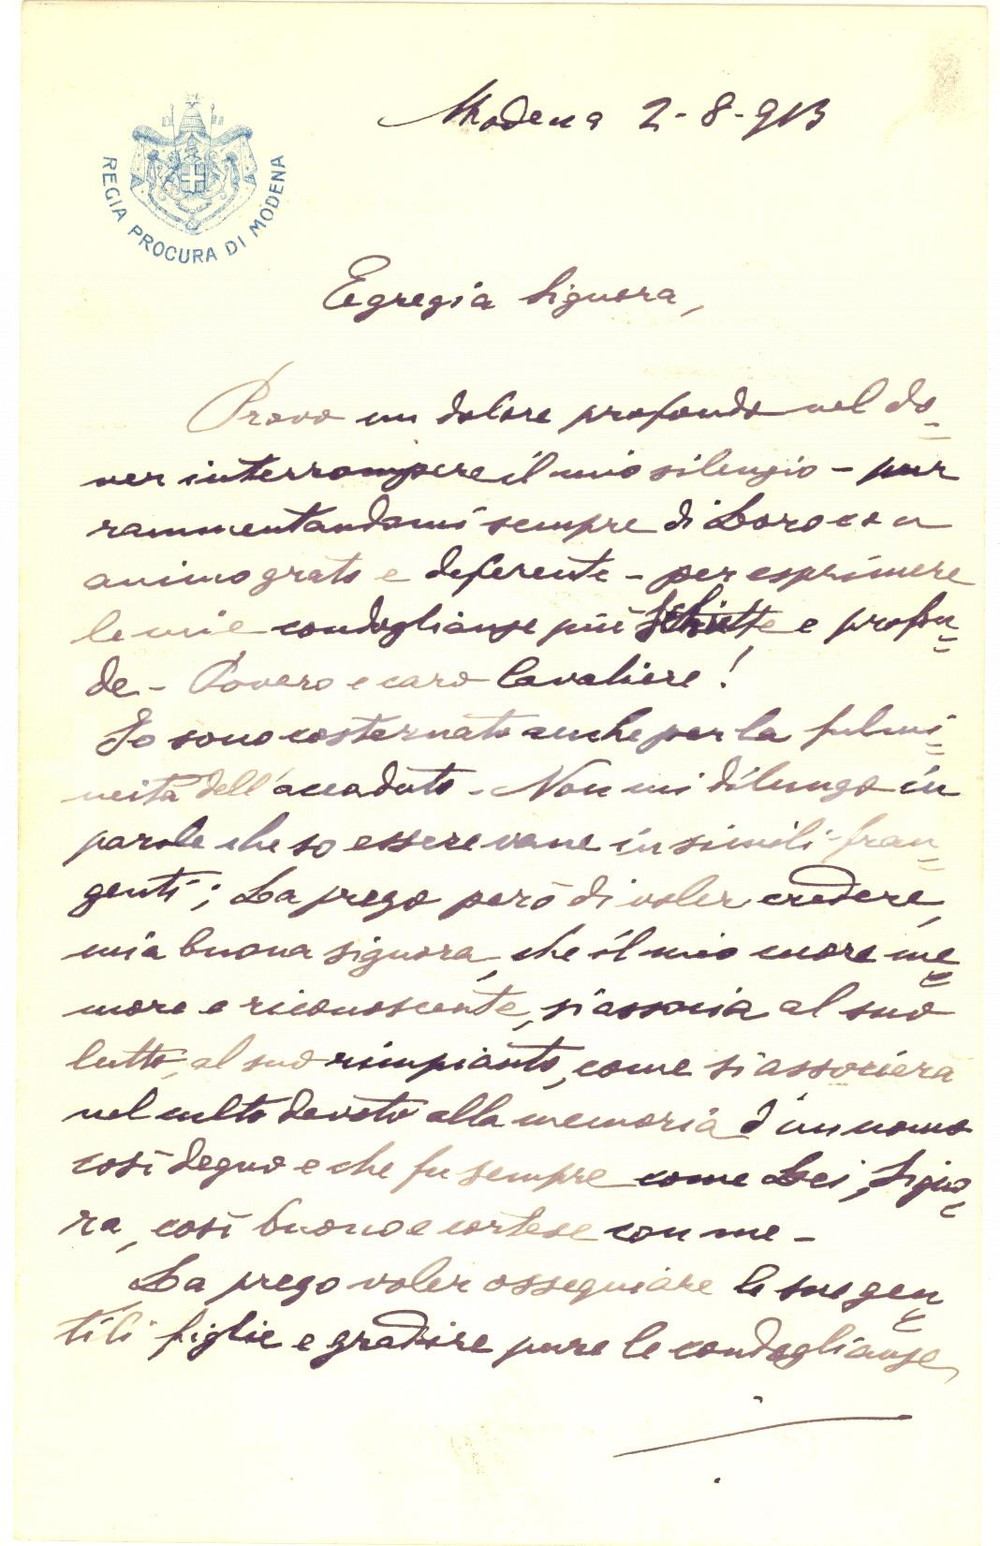 REGIA PROCURA DI MODENA
Modena 2-8-913
Egregia Signora,
Provo un dolore profondo nel do=
ver interrompere il mio silenzio - pur
rammentandomi sempre di Loro con
animo grato e deferente - per esprimere
le mie condoglianze più schiette e profon=
de - Povero e caro Cavaliere!
Io sono costernato anche per la fulmi=
neità dell'accaduto - Non mi dilungo in
parole che so essere vane in simili fran=
genti; La prego però di voler credere,
mia buona signora, che il mio cuore me=
more e riconoscente, si associa al suo
lutto, al suo rimpianto, come si associerà
nel culto devoto alla memoria d'un uomo
così degno e che fu sempre come Lei, Signo=
ra, così buono e cortese con me -
La prego voler ossequiare le sue gen=
tili figlie e gradire pure le condoglianze,